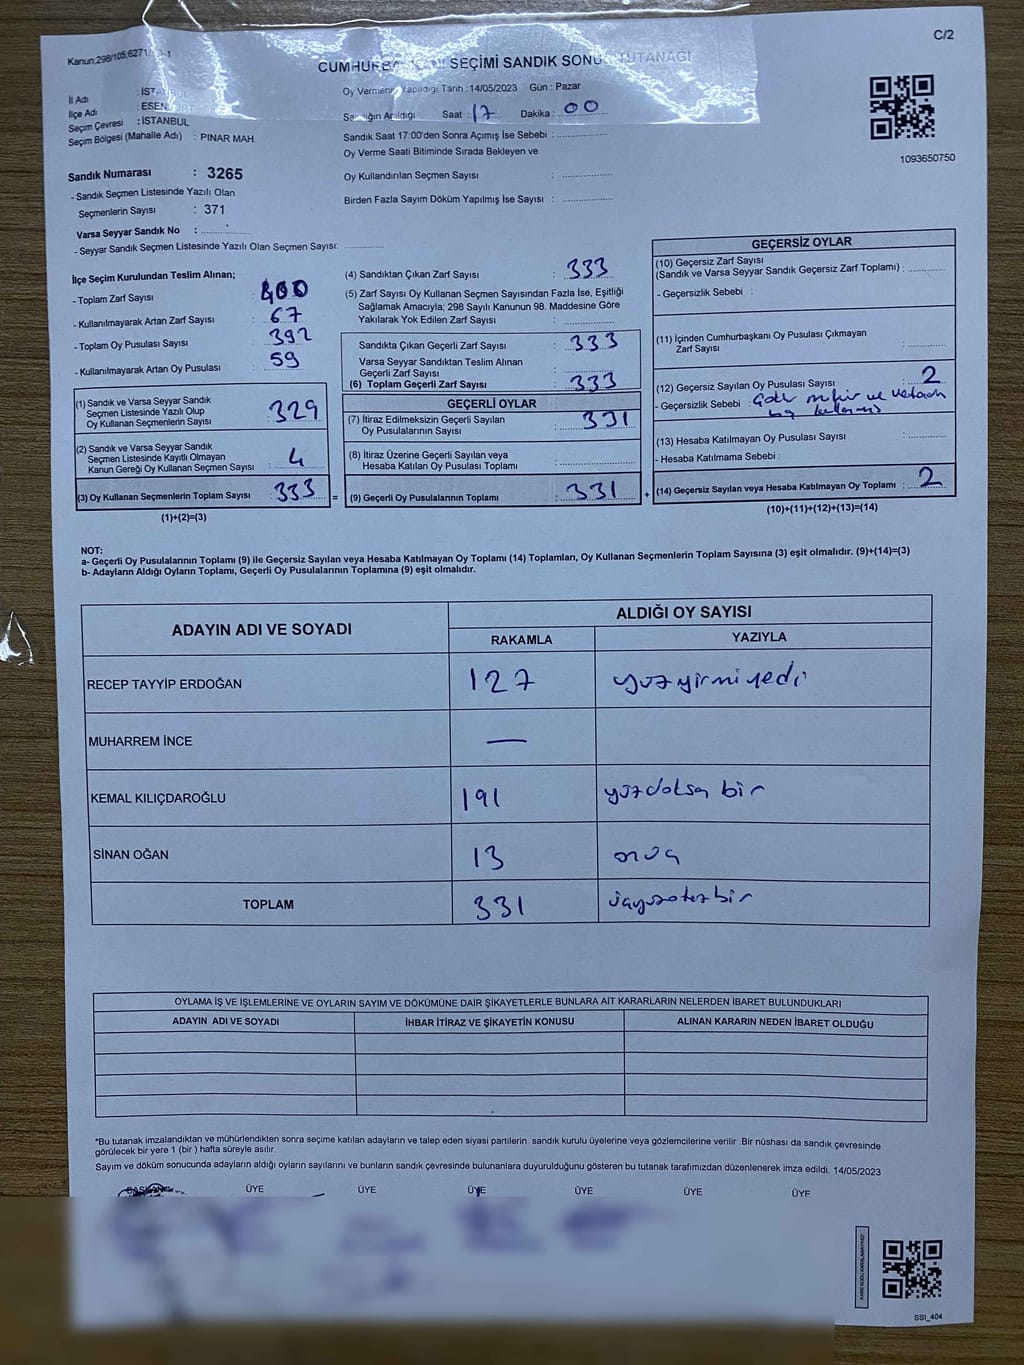 C/2
Kanun:298/105;6271/
CUMHURBA SEÇİMİ SANDIK SONU TUTANAĞI
İl Adı : İSTANBUL
Oy Vermenin Yapıldığı Tarih :14/05/2023 Gün : Pazar
İlçe Adı : ESENYURT
Sandığın Açıldığı Saat : 17 Dakika : 00
Seçim Çevresi : İSTANBUL
Seçim Bölgesi (Mahalle Adı) : PINAR MAH.
Sandık Saat 17:00'den Sonra Açımış İse Sebebi :
Oy Verme Saati Bitiminde Sırada Bekleyen ve
Oy Kullandırılan Seçmen Sayısı :
Birden Fazla Sayım Döküm Yapılmış İse Sayısı :
1093650750
Sandık Numarası : 3265
- Sandık Seçmen Listesinde Yazılı Olan
Seçmenlerin Sayısı : 371
Varsa Seyyar Sandık No :
- Seyyar Sandık Seçmen Listesinde Yazılı Olan Seçmen Sayısı:
İlçe Seçim Kurulundan Teslim Alınan;
- Toplam Zarf Sayısı : 400
- Kullanılmayarak Artan Zarf Sayısı : 67
- Toplam Oy Pusulası Sayısı : 392
- Kullanılmayarak Artan Oy Pusulası : 59
(1) Sandık ve Varsa Seyyar Sandık
Seçmen Listesinde Yazılı Olup
Oy Kullanan Seçmenlerin Sayısı : 329
(2) Sandık ve Varsa Seyyar Sandık
Seçmen Listesinde Kayıtlı Olmayan
Kanun Gereği Oy Kullanan Seçmen Sayısı : 4
(3) Oy Kullanan Seçmenlerin Toplam Sayısı : 333 =
(1)+(2)=(3)
(4) Sandıktan Çıkan Zarf Sayısı : 333
(5) Zarf Sayısı Oy Kullanan Seçmen Sayısından Fazla İse, Eşitliği
Sağlamak Amacıyla; 298 Sayılı Kanunun 98. Maddesine Göre
Yakılarak Yok Edilen Zarf Sayısı :
Sandıkta Çıkan Geçerli Zarf Sayısı : 333
Varsa Seyyar Sandıktan Teslim Alınan
Geçerli Zarf Sayısı :
(6) Toplam Geçerli Zarf Sayısı : 333
GEÇERLİ OYLAR
(7) İtiraz Edilmeksizin Geçerli Sayılan
Oy Pusulalarının Sayısı : 331
(8) İtiraz Üzerine Geçerli Sayılan veya
Hesaba Katılan Oy Pusulası Toplamı :
(9) Geçerli Oy Pusulalarının Toplamı : 331 +
GEÇERSİZ OYLAR
(10) Geçersiz Zarf Sayısı
(Sandık ve Varsa Seyyar Sandık Geçersiz Zarf Toplamı) :
- Geçersizlik Sebebi :
(11) İçinden Cumhurbaşkanı Oy Pusulası Çıkmayan
Zarf Sayısı :
(12) Geçersiz Sayılan Oy Pusulası Sayısı : 2
- Geçersizlik Sebebi :
(13) Hesaba Katılmayan Oy Pusulası Sayısı :
- Hesaba Katılmama Sebebi :
(14) Geçersiz Sayılan veya Hesaba Katılmayan Oy Toplamı : 2
(10)+(11)+(12)+(13)=(14)
NOT:
a- Geçerli Oy Pusulalarının Toplamı (9) ile Geçersiz Sayılan veya Hesaba Katılmayan Oy Toplamı (14) Toplamları, Oy Kullanan Seçmenlerin Toplam Sayısına (3) eşit olmalıdır. (9)+(14)=(3)
b- Adayların Aldığı Oyların Toplamı, Geçerli Oy Pusulalarının Toplamına (9) eşit olmalıdır.
ADAYIN ADI VE SOYADI ALDIĞI OY SAYISI
RAKAMLA YAZIYLA
RECEP TAYYİP ERDOĞAN 127 yüzyirmiyedi
MUHARREM İNCE —
KEMAL KILIÇDAROĞLU 191 yüzdoksa bir
SİNAN OĞAN 13 onüç
TOPLAM 331 üçyüzotuzbir
OYLAMA İŞ VE İŞLEMLERİNE VE OYLARIN SAYIM VE DÖKÜMÜNE DAİR ŞİKAYETLERLE BUNLARA AİT KARARLARIN NELERDEN İBARET BULUNDUKLARI
ADAYIN ADI VE SOYADI İHBAR İTİRAZ VE ŞİKAYETİN KONUSU ALINAN KARARIN NEDEN İBARET OLDUĞU
*Bu tutanak imzalandıktan ve mühürlendikten sonra seçime katılan adayların ve talep eden siyasi partilerin sandık kurulu üyelerine veya gözlemcilerine verilir .Bir nüshası da sandık çevresinde
görülecek bir yere 1 (bir ) hafta süreyle asılır.
Sayım ve döküm sonucunda adayların aldığı oyların sayılarını ve bunların sandık çevresinde bulunanlara duyurulduğunu gösteren bu tutanak tarafımızdan düzenlenerek imza edildi. 14/05/2023
BAŞKAN ÜYE ÜYE ÜYE ÜYE ÜYE ÜYE
KARE KODU KARALAMAYINIZ!
SSI_404